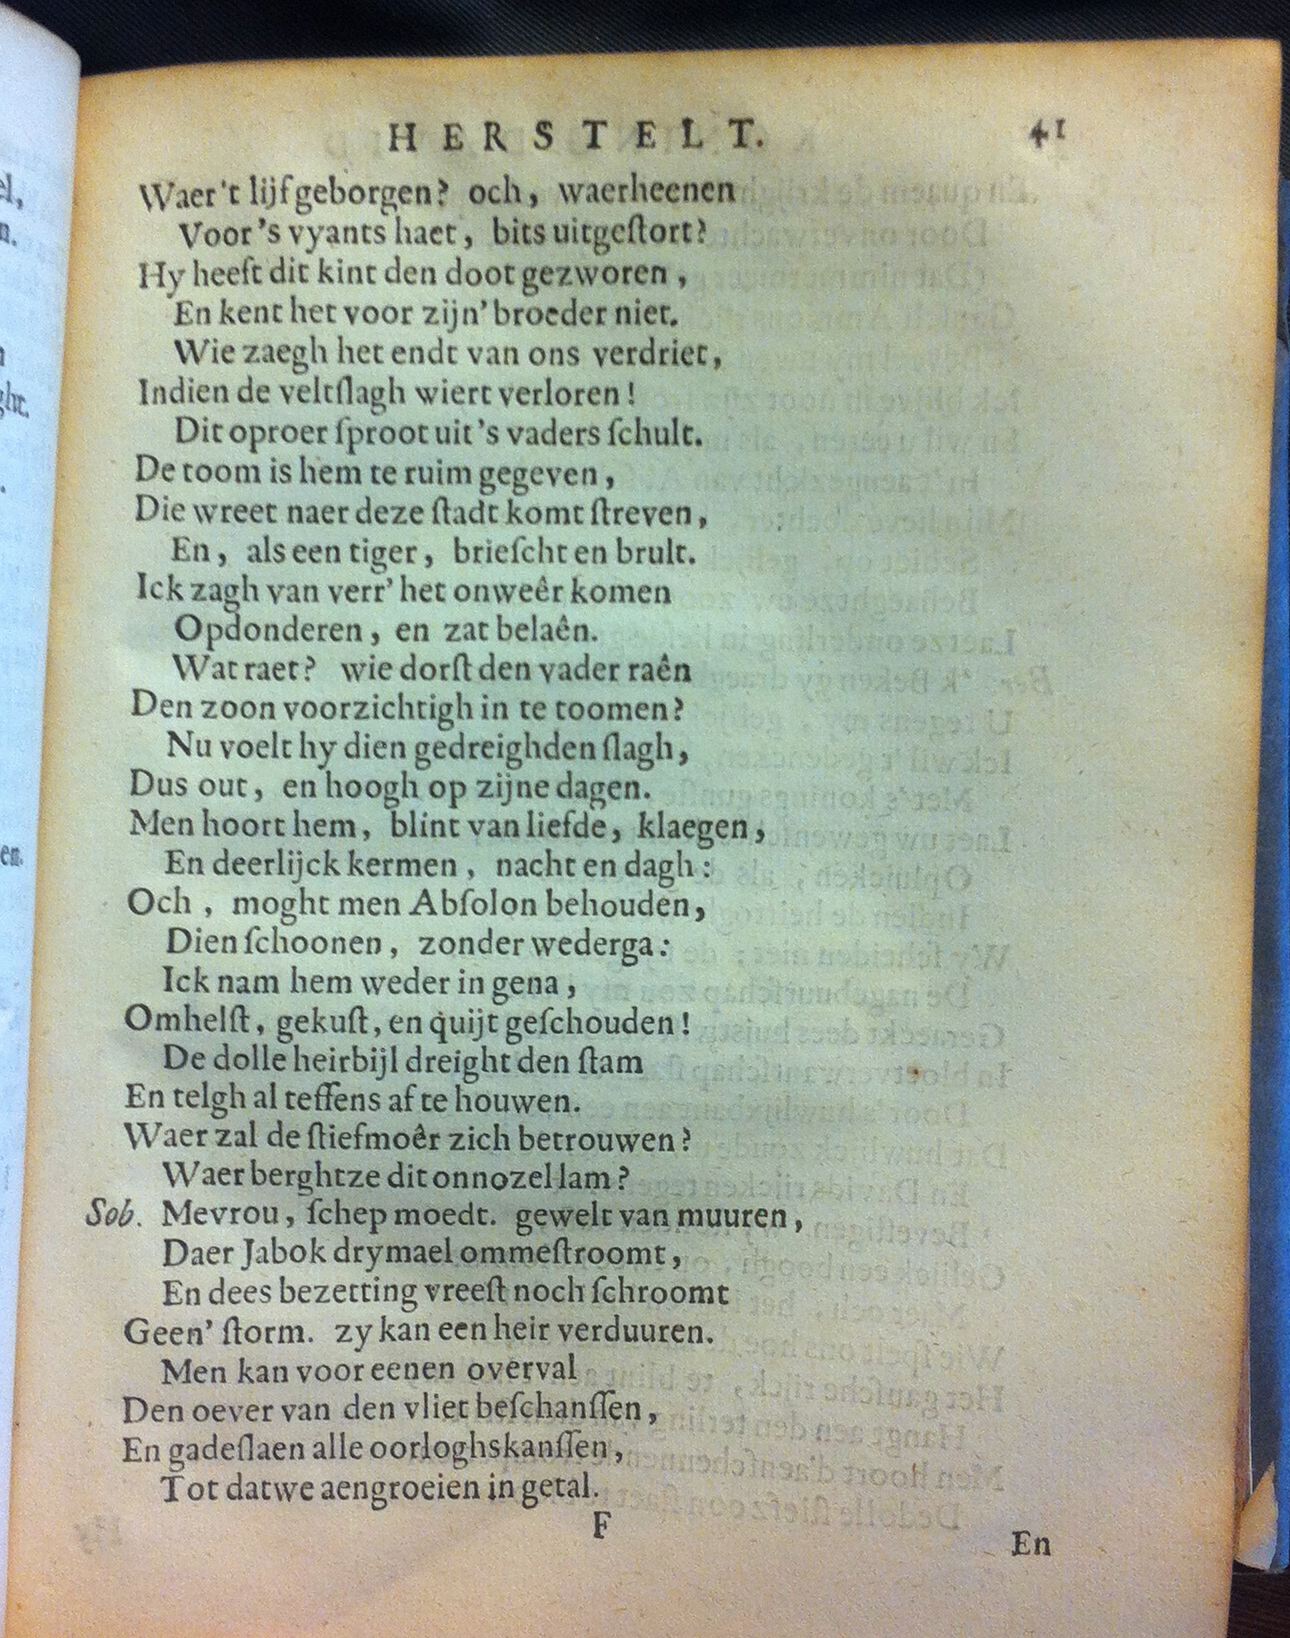 HERSTELT. 41
Waer 't lijf geborgen? och, waerheenen
Voor 's vyants haet, bits uitgeſtort?
Hy heeft dit kint den doot gezworen,
En kent het voor zijn' broeder niet.
Wie zaegh het endt van ons verdriet,
Indien de veltſlagh wiert verloren!
Dit oproer ſproot uit 's vaders ſchult.
De toom is hem te ruim gegeven,
Die wreet naer deze ſtadt komt ſtreven,
En, als een tiger, brieſcht en brult.
Ick zagh van verr' het onweêr komen
Opdonderen, en zat belaên.
Wat raet? wie dorſt den vader raên
Den zoon voorzichtigh in te toomen?
Nu voelt hy dien gedreighden ſlagh,
Dus out, en hoogh op zijne dagen.
Men hoort hem, blint van liefde, klaegen,
En deerlijck kermen, nacht en dagh:
Och, moght men Abſolon behouden,
Dien ſchoonen, zonder wederga:
Ick nam hem weder in gena,
Omhelſt, gekuſt, en quijt geſchouden!
De dolle heirbijl dreight den ſtam
En telgh al teſſens af te houwen.
Waer zal de ſtiefmoêr zich betrouwen?
Waer berghtze dit onnozel lam?
Sob. Mevrou, ſchep moedt. gewelt van muuren,
Daer Jabok drymael ommeſtroomt,
En dees bezetting vreeſt noch ſchroomt
Geen' ſtorm. zy kan een heir verduuren.
Men kan voor eenen overval
Den oever van den vliet beſchanſſen,
En gadeſlaen alle oorloghskanſſen,
Tot datwe aengroeien in getal.
F
En